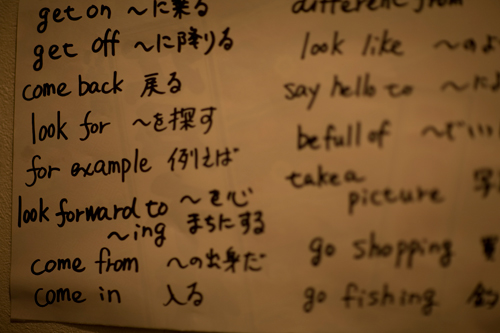 get on 〜に乗る
get off 〜に降りる
come back 戻る
look for 〜を探す
for example 例えば
look forward to 〜を心
〜ing まちにする
come from 〜の出身だ
come in 入る
different from
look like 〜のよ
say hello to 〜によ
be full of 〜でいい
take a
picture 写
go shopping
go fishing 釣